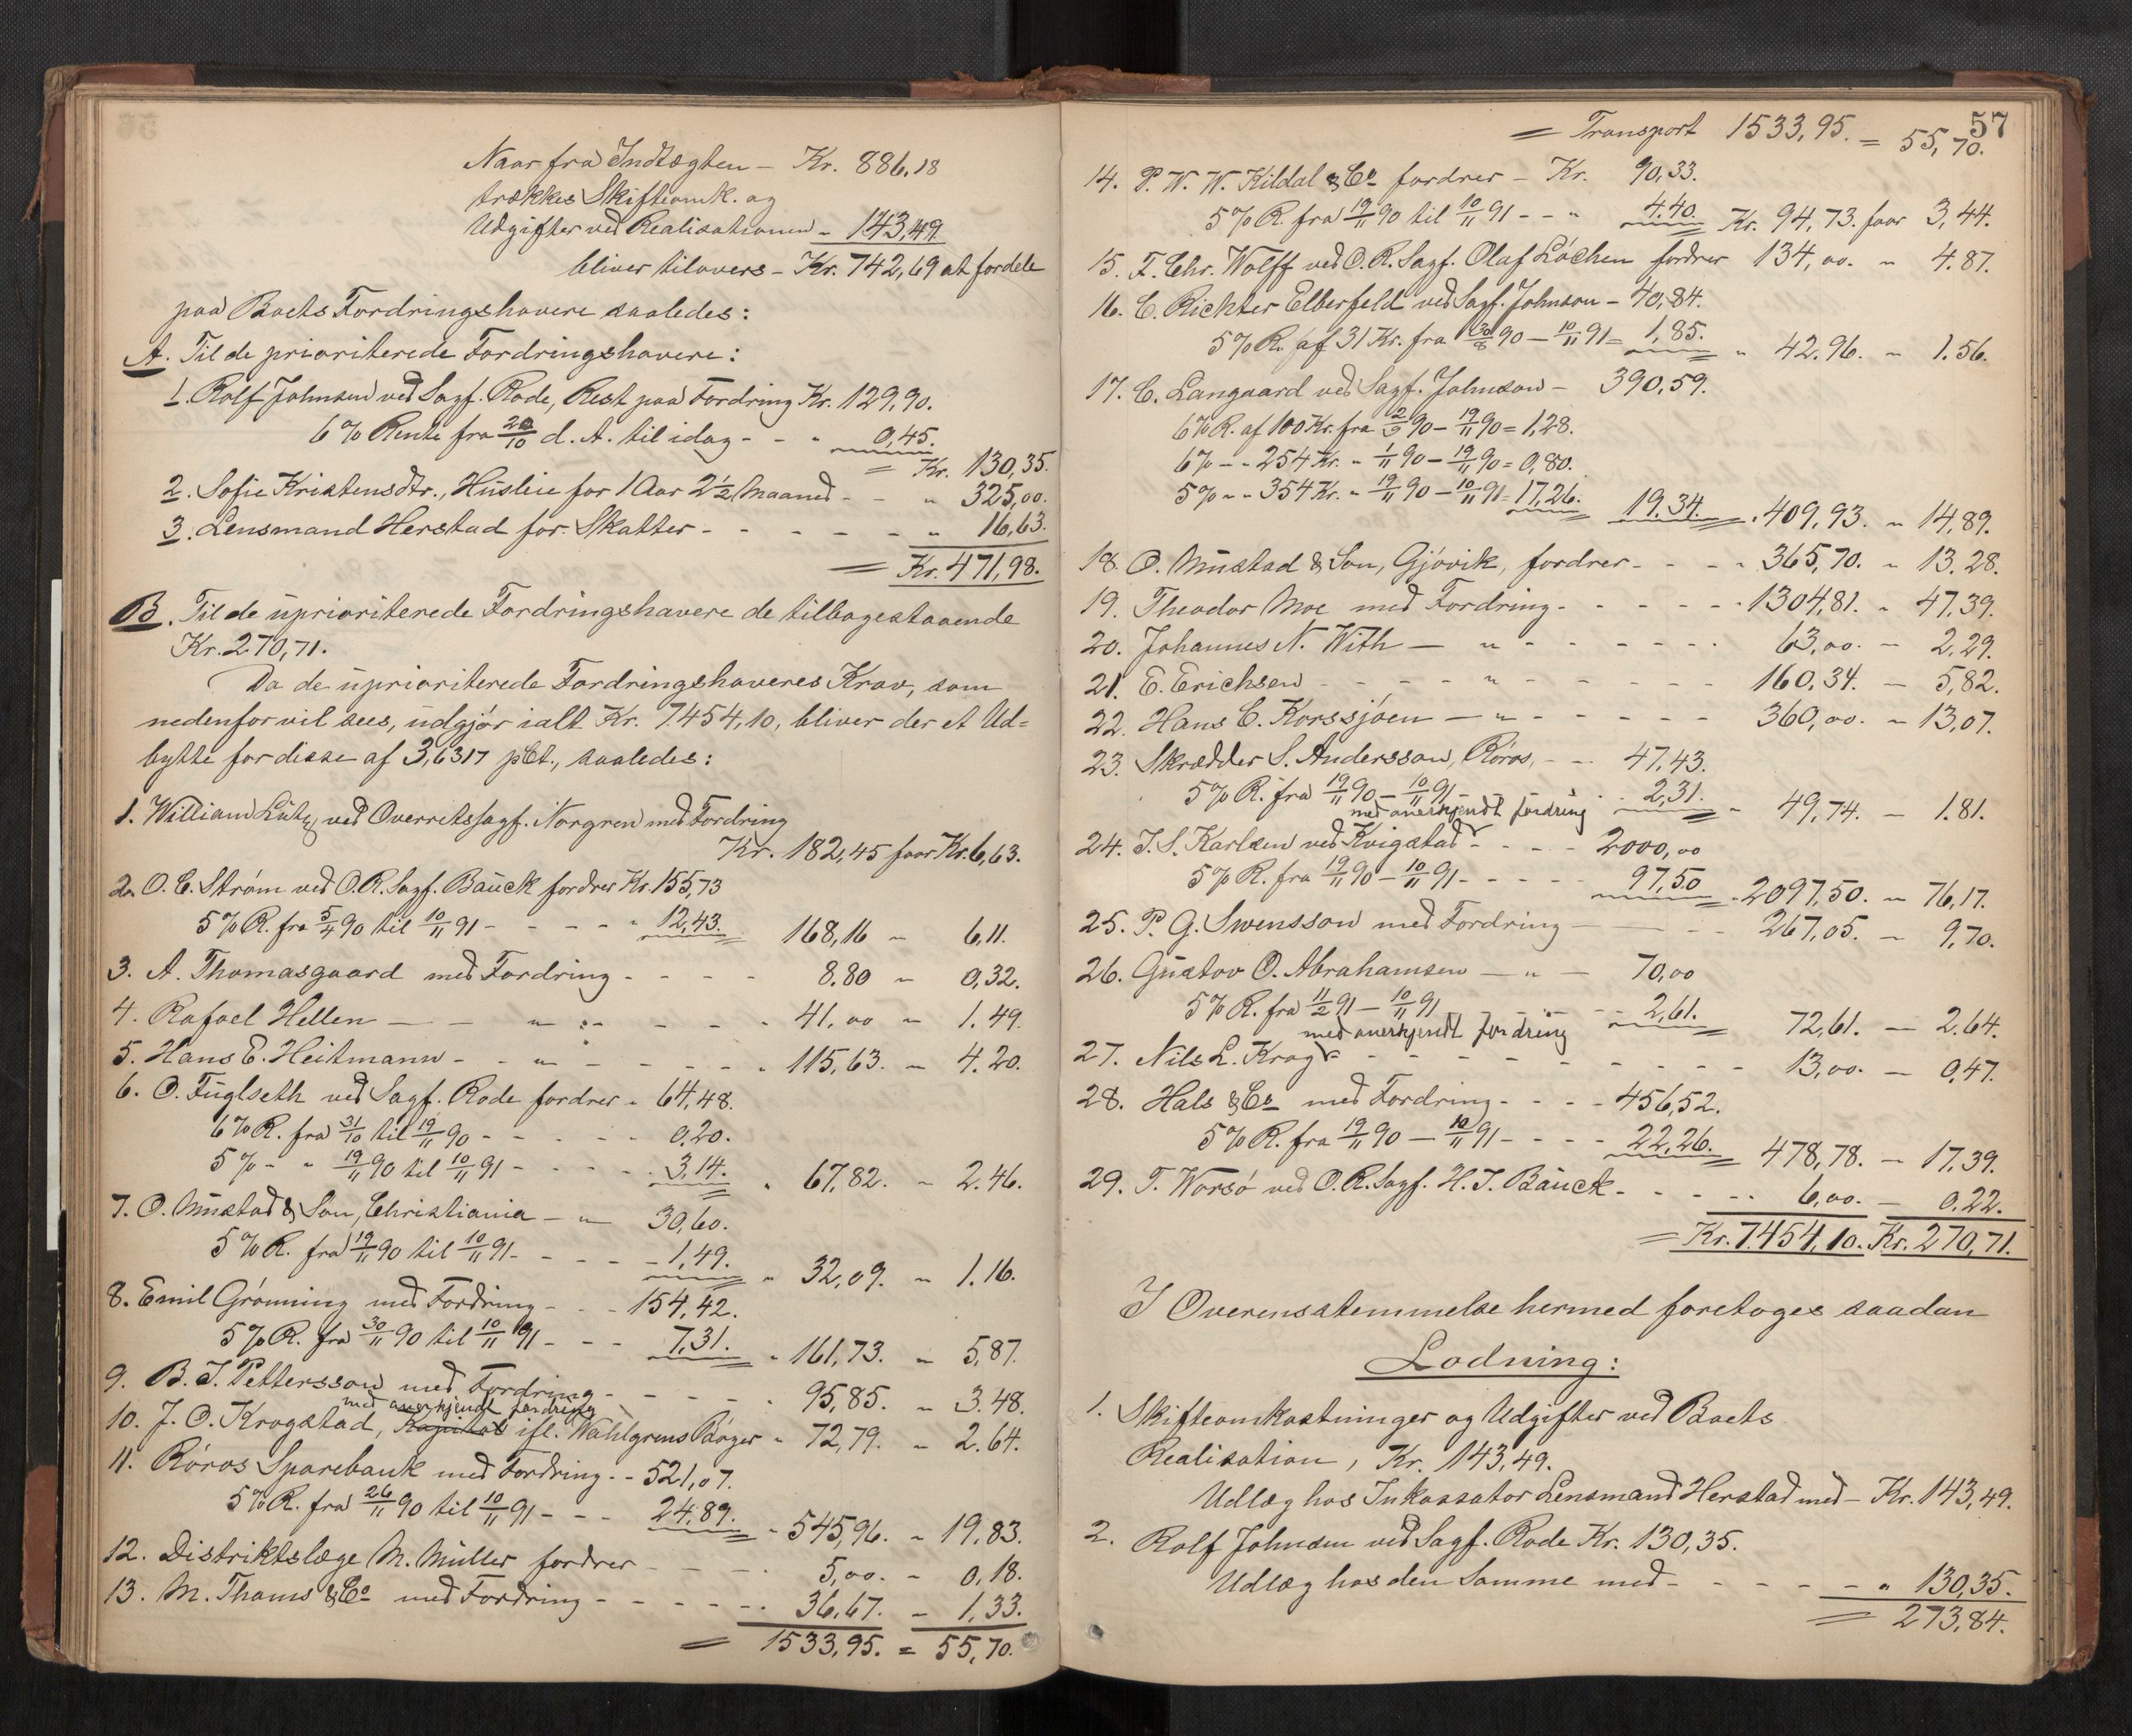 Naar fra Indtægten - Kr. 886,18
trækkes Skifteomk. og
Udgifter ved Realisationen - 143,49
bliver tilovers - Kr. 742,69 at fordele
paa Boets Fordringshavere saaledes:
A. Til de prioriterede Fordringshavere:
1. Rolf Johnsen ved Sagf. Rode, Rest paa Fordring Kr. 129,90.
6% Rente fra 20/10 d. A. til idag - - " 0,45.
= Kr. 130,35.
2. Sofie Kristensdtr., Husleie for 1 Aar 2½ Maaned - - " 325,00.
3. Lensmand Herstad for Skatter - - - - - " 16,63.
= Kr. 471,98.
B. Til de uprioriterede Fordringshavere de tilbagestaaende
Kr. 270,71.
Da de uprioriterede Fordringshaveres Krav, som
nedenfor vil sees, udgjør ialt Kr. 7.454,10, bliver der et Ud=
bytte for disse af 3,6317 pCt., saaledes:
1. William ved Overretssagf. Norgren med Fordring
Kr. 182,45 faar Kr. 6,63.
2. O. C. Strøm ved O.R.Sagf. Bauck fordrer Kr. 155,73
5% R. fra 5/4 90 til 10/11 91 - - - - " 12,43. 168,16 " 6,11.
3. A. Thomasgaard med Fordring - - - - 8,80 " 0,32.
4. Rafael Hellen - - " - - - - 41,00 " 1.49.
5. Hans E. Heitmann - - " - - - - " 115,63. " 4.20.
6. O. Fuglseth ved Sagf. Rode fordrer " 64,48.
6% R. fra 31/10 til 19/11 90 - - - - - 0.20.
5% - " 19/11 90 til 10/11 91 - - - - - 3,14. " 67,82. " 2.46.
7. O. Mustad & Søn, Christiania - " 30,60.
5% R. fra 19/11 90 til 10/11 91 - - - - 1,49. " 32,09. " 1.16.
8. Emil Grønning med Fordring - - - 154,42.
5% R. fra 30/11 90 til 10/11 91 - - - 7,31. " 161,73. " 5,87.
9. B. J. Pettersson med Fordring - - - - - 95,85. " 3.48.
med anerkjendt fordring
10. J. O. Krogstad, Kapital ifl. Wahlgrens Bøger " 72,79. " 2.64.
11. Røros Sparebank med Fordring - - 521,07.
5% R. fra 26/11 90 til 10/11 91 - - - 24,89. " 545,96. " 19,83.
12. Distriktslæge M. Müller fordrer - - - - 5,00. " 0,18.
13. M. Thams & Co med Fordring - - - - - - 36,67. " 1,33.
= 1533,95. = 55,70.
57
= Transport 1533,95. = 55,70.
14. P. W. W. Kildal & Co fordrer - Kr. 90,33.
5% R. fra 19/11 90 til 10/11 91 - - " 4.40. Kr. 94,73. faar 3,44.
15. F. Chr. Wolff ved O.R.Sagf. Olaf Løchen fordrer 134,00. " 4.87.
16. C. Richter Elberfeld ved Sagf. Johnson - 40,84.
5% R. af 31 Kr. fra 30/8 90 - 10/11 91 = 1,85. " 42.96. " 1.56.
17. C. Langaard ved Sagf. Johnson - 390,59.
6% R. af 100 Kr. fra 2/9 90 - 19/11 90 = 1,28.
6% - " 254 Kr. " 1/11 90 - 19/11 90 = 0,80.
5% " " 354 Kr. " 19/11 90 - 10/11 91 = 17,26. 19.34. " 409,93. " 14,89.
18. O. Mustad & Søn, Gjøvik, fordrer - - - " 365,70. " 13.28.
19. Theodor Moe med Fordring - - - - - - 1304,81. " 47,39.
20. Johannes N. With - " - - - - - - 63,00. - 2,29.
21. E. Erichsen - - - - " - - - - - 160,34. - 5,82.
22. Hans C. Korssjøen - " - - - - - - 360,00. " 13,07.
23. Skrædder S. Andersson, Røros, - - 47,43.
5% R. fra 19/11 90 - 10/11 91 - - - - 2,31. " 49,74. - 1.81.
med anerkjendt fordring
24. J. S. Karlsen ved Kvigstad - - - - 2000,00
5% R. fra 19/11 90 - 10/11 91 - - - - - 97,50 " 2097,50. " 76,17.
25. P. G. Swensson med Fordring - - - - 267,05. - 9,70.
26. Gustav O. Abrahamsen - " - 70,00
5% R. fra 11/2 91 - 10/11 91 - - - - 2,61. 72,61. - 2.64.
med anerkjendt fordring
27. Nils L. Krog - - - - - - - - - 13,00. - 0,47.
28. Hals & Co med Fordring - - - - 456,52.
5% R. fra 19/11 90 - 10/11 91 - - - - 22,26. 478,78. - 17,39.
29. T. Worsø ved O.R.Sagf. H. J. Bauck - - - - - 6,00. - 0.22.
= Kr. 7.454,10. Kr. 270,71.
I Overensstemmelse hermed foretoges saadan
Lodning:
1. Skifteomkostninger og Udgifter ved Boets
Realisation, Kr. 143,49.
Udlæg hos Inkassator Lensmand Herstad med - Kr. 143,49.
2. Rolf Johnsen ved Sagf. Rode Kr. 130,35.
Udlæg hos den Samme med - - - - - " 130,35.
= 273,84.